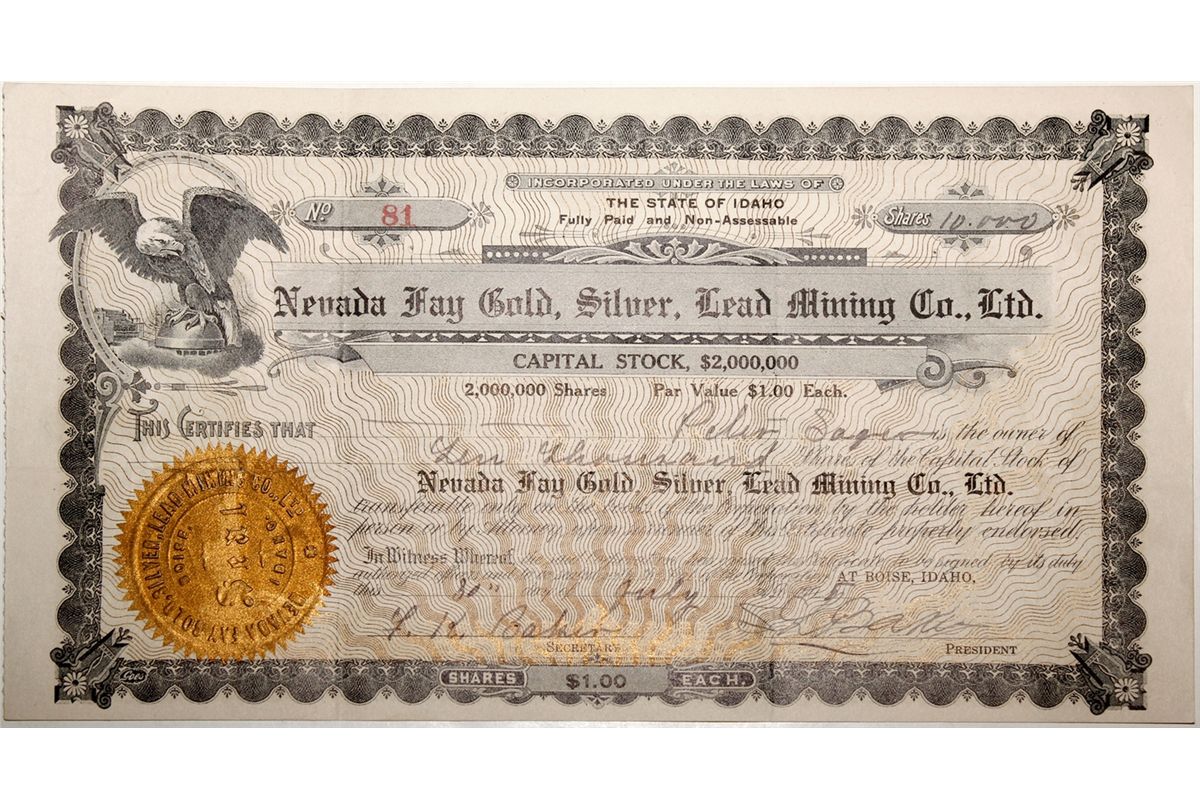 INCORPORATED UNDER THE LAWS OF
THE STATE OF IDAHO
Fully Paid and Non-Assessable
No 81
Shares 10.000
Nevada Fay Gold, Silver, Lead Mining Co., Ltd.
CAPITAL STOCK, $2,000,000
2,000,000 Shares Par Value $1.00 Each.
THIS CERTIFIES THAT Peter is the owner of
Ten Thousand Shares of the Capital Stock of
Nevada Fay Gold, Silver, Lead Mining Co., Ltd.
transferable only on the books of the Corporation by the holder hereof in
person or by Attorney upon surrender of this Certificate properly endorsed.
In Witness Whereof, the said Corporation has caused this Certificate to be signed by its duly
authorized officers and to be sealed with the Seal of the Corporation AT BOISE, IDAHO,
this 30th day of July
SECRETARY
PRESIDENT
NEVADA FAY GOLD, SILVER, LEAD MINING CO., LTD.
BOISE, IDAHO
SEAL
Goes
SHARES $1.00 EACH.